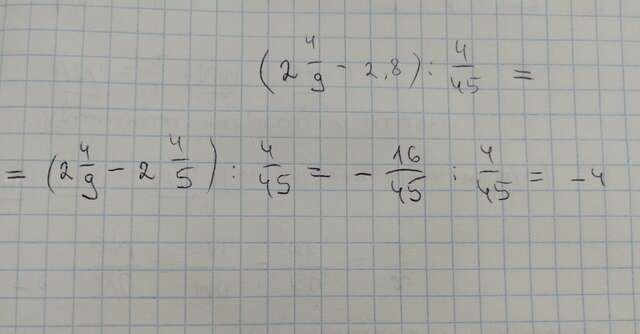 (2 4/9 - 2,8) : 4/45 =
= (2 4/9 - 2 4/5) : 4/45 = - 16/45 : 4/45 = -4